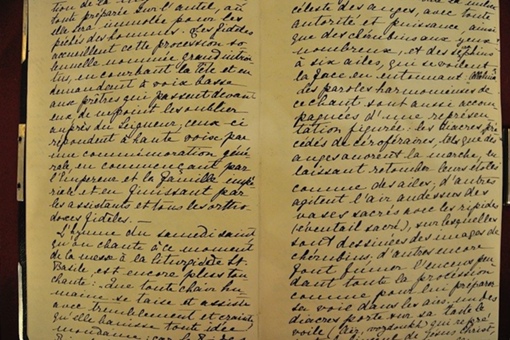 tout préparé. Sur l'autel, où
elle sera immolée pour les
péchés des hommes. Les fidèles
accueillent cette procession so-
lennelle nommée grand introi-
tus, en courbant la tête et en
demandent à voix basse
aux prêtres qui passent devant
eux, de ne point les oublier
auprès du Seigneur, ceux-ci
répondent à haute voix par
une commémoration géné-
rale en commençant par
l'Empereur et la famille impé-
riale et en finissant par
les assistants et tous les ortho-
doxes fidèles. —
L'hymne du samedi saint
qu'on chante à ce moment
de la messe à la liturgie de St.
Basile, est encore plus tou-
chante: Que toute chair hu-
maine se taise et assiste
avec tremblement et crainte
qu'elle bannisse toute idée
mondaine; car le Roi des
céleste des anges, avec toute
autorité et puissance, ainsi
que des chérubins aux yeux
nombreux, et des séraphins
à six ailes, qui se voilent
la face en entonnant Alleluia
des paroles harmonieuses de
ce chant sont aussi accom-
pagnées d'une représen-
tation figurée: les diacres pré-
cédés de céroféraires, tels que des
anges ouvrent la marche, en
laissant retomber leurs étoles
comme des ailes, d'autres
agitent l'air au dessus des
vases sacrés avec les ripides
(éventail sacré), sur lesquelles
sont dessinées des images de
chérubins, d'autres encore
font fumer l'encens pen-
dant toute la procession
comme pour lui préparer
sa voie dans les airs, un des
diacres porte sur sa tête le
voile (l'air, vozdoukh) qui
de Jésus Christ,